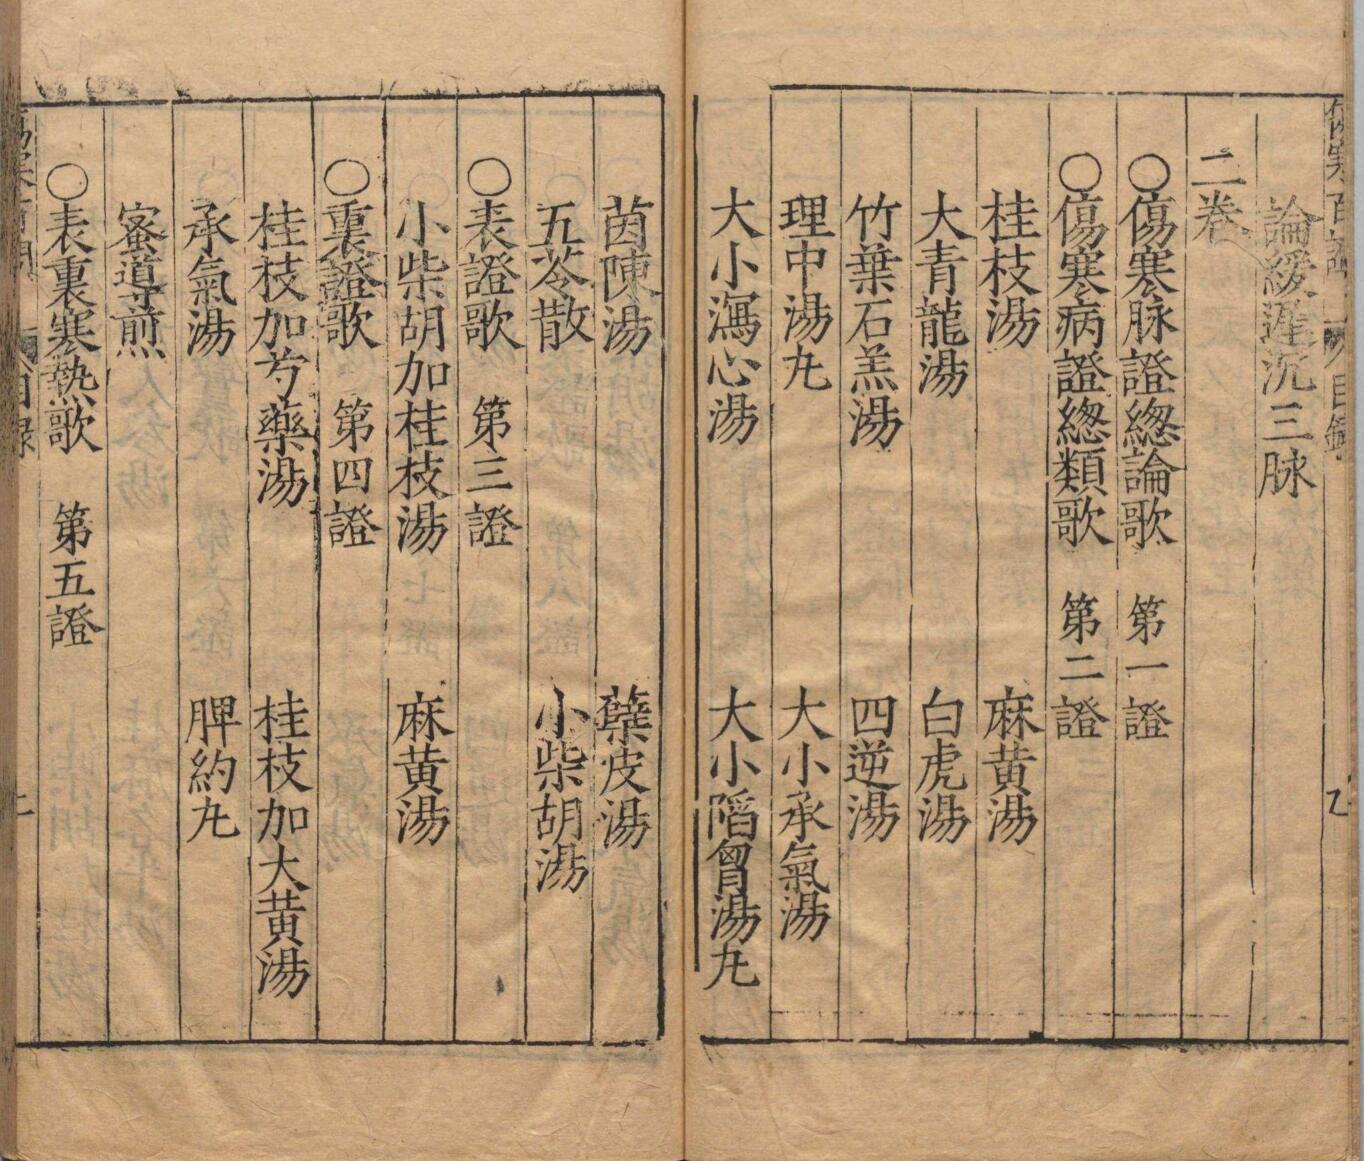 論緩遲沉三脉
二卷
○傷寒脉證緫論歌　第一證
○傷寒病證緫類歌　第二證
桂枝湯　麻黄湯
大青龍湯　白虎湯
竹葉石羔湯　四逆湯
理中湯九　大小承氣湯
大小瀉心湯　大小陷胷湯九
茵陳湯　蘗皮湯
五苓散　小柴胡湯
○表證歌　第三證
小柴胡加桂枝湯　麻黄湯
○裏證歌　第四證
桂枝加芍藥湯　桂枝加大黄湯
承氣湯　脾約九
蜜導煎
○表裏寒熱歌　第五證